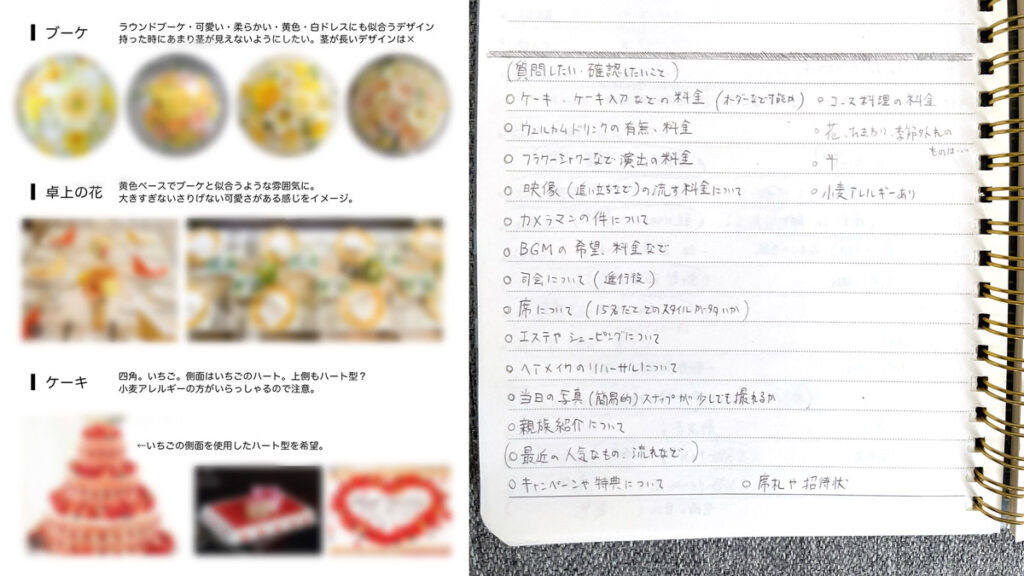 ブーケ
ラウンドブーケ・可愛い・柔らかい・黄色・白ドレスにも似合うデザイン
持った時にあまり茎が見えないようにしたい。茎が長いデザインは×
卓上の花
黄色ベースでブーケと似合うような雰囲気に。
大きすぎないさりげない可愛さがある感じをイメージ。
ケーキ
四角。いちご。側面はいちごのハート。上側もハート型？
小麦アレルギーの方がいらっしゃるので注意。
←いちごの側面を使用したハート型を希望。
(質問したい・確認したいこと)
○ケーキ・ケーキ入刀などの料金 (オーダーなど可能か)
○コース料理の料金
○ウェルカムドリンクの有無、料金
○花、ひまわり、季節外れの
ものは…
○フラワーシャワーなど演出の料金
○牛
○映像(追い立ちなど)の流す料金について
○小麦アレルギーあり
○カメラマンの件について
○BGMの希望、料金など
○司会について(進行役)
○席について (15名だとどのスタイルが多いか)
○エステやシェービングについて
○ヘアメイクのリハーサルについて
○当日の写真(簡易的)スナップが少しでも撮れるか
○親族紹介について
(○最近の人気なもの、流れなど)
○キャンペーンや特典について
○席札や招待状